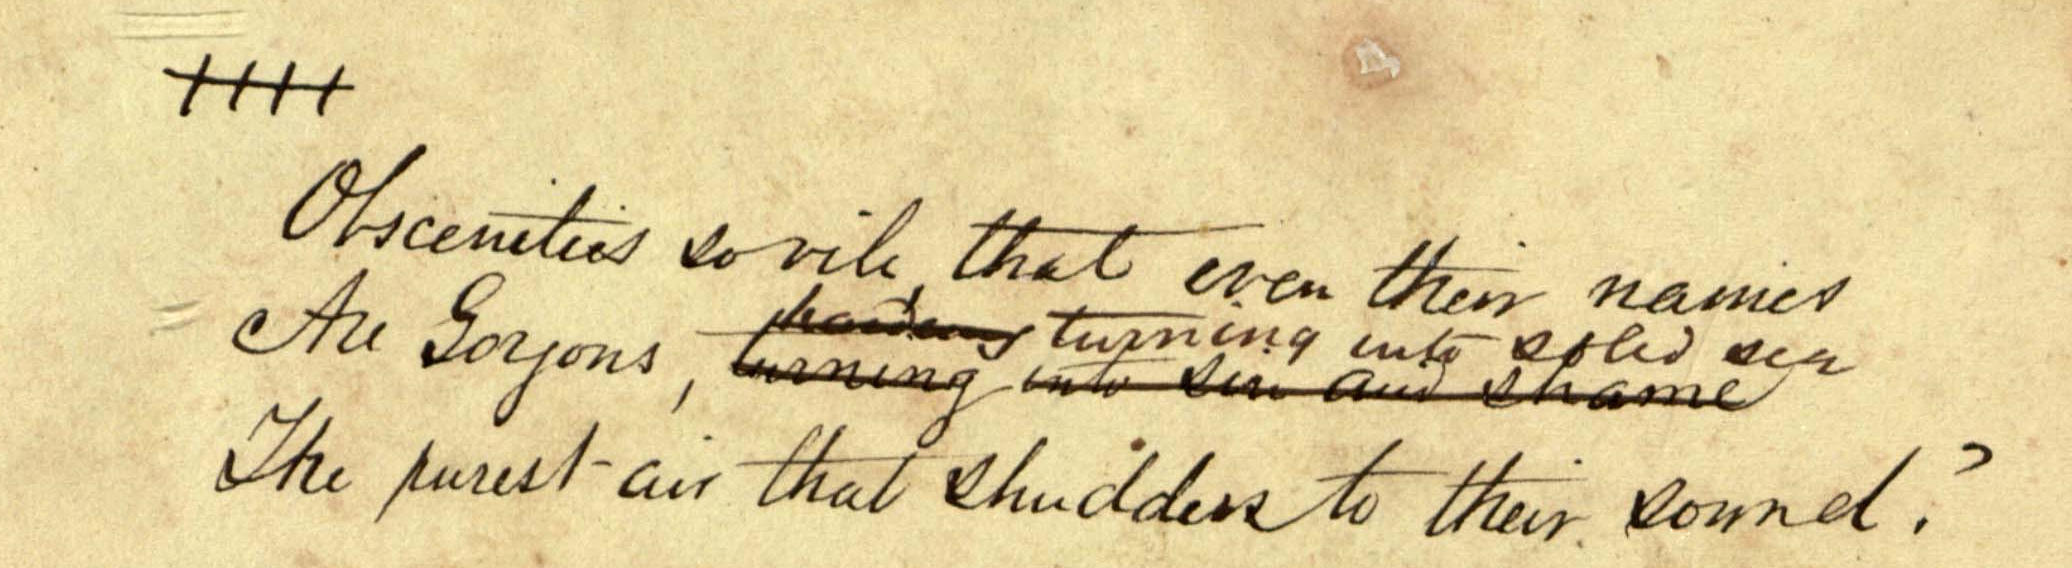 Obscenities so vile, that even their names
hardens turning into solid sin
Are Gorgons, turning into sin and shame
The purest air that shudders to their sound?